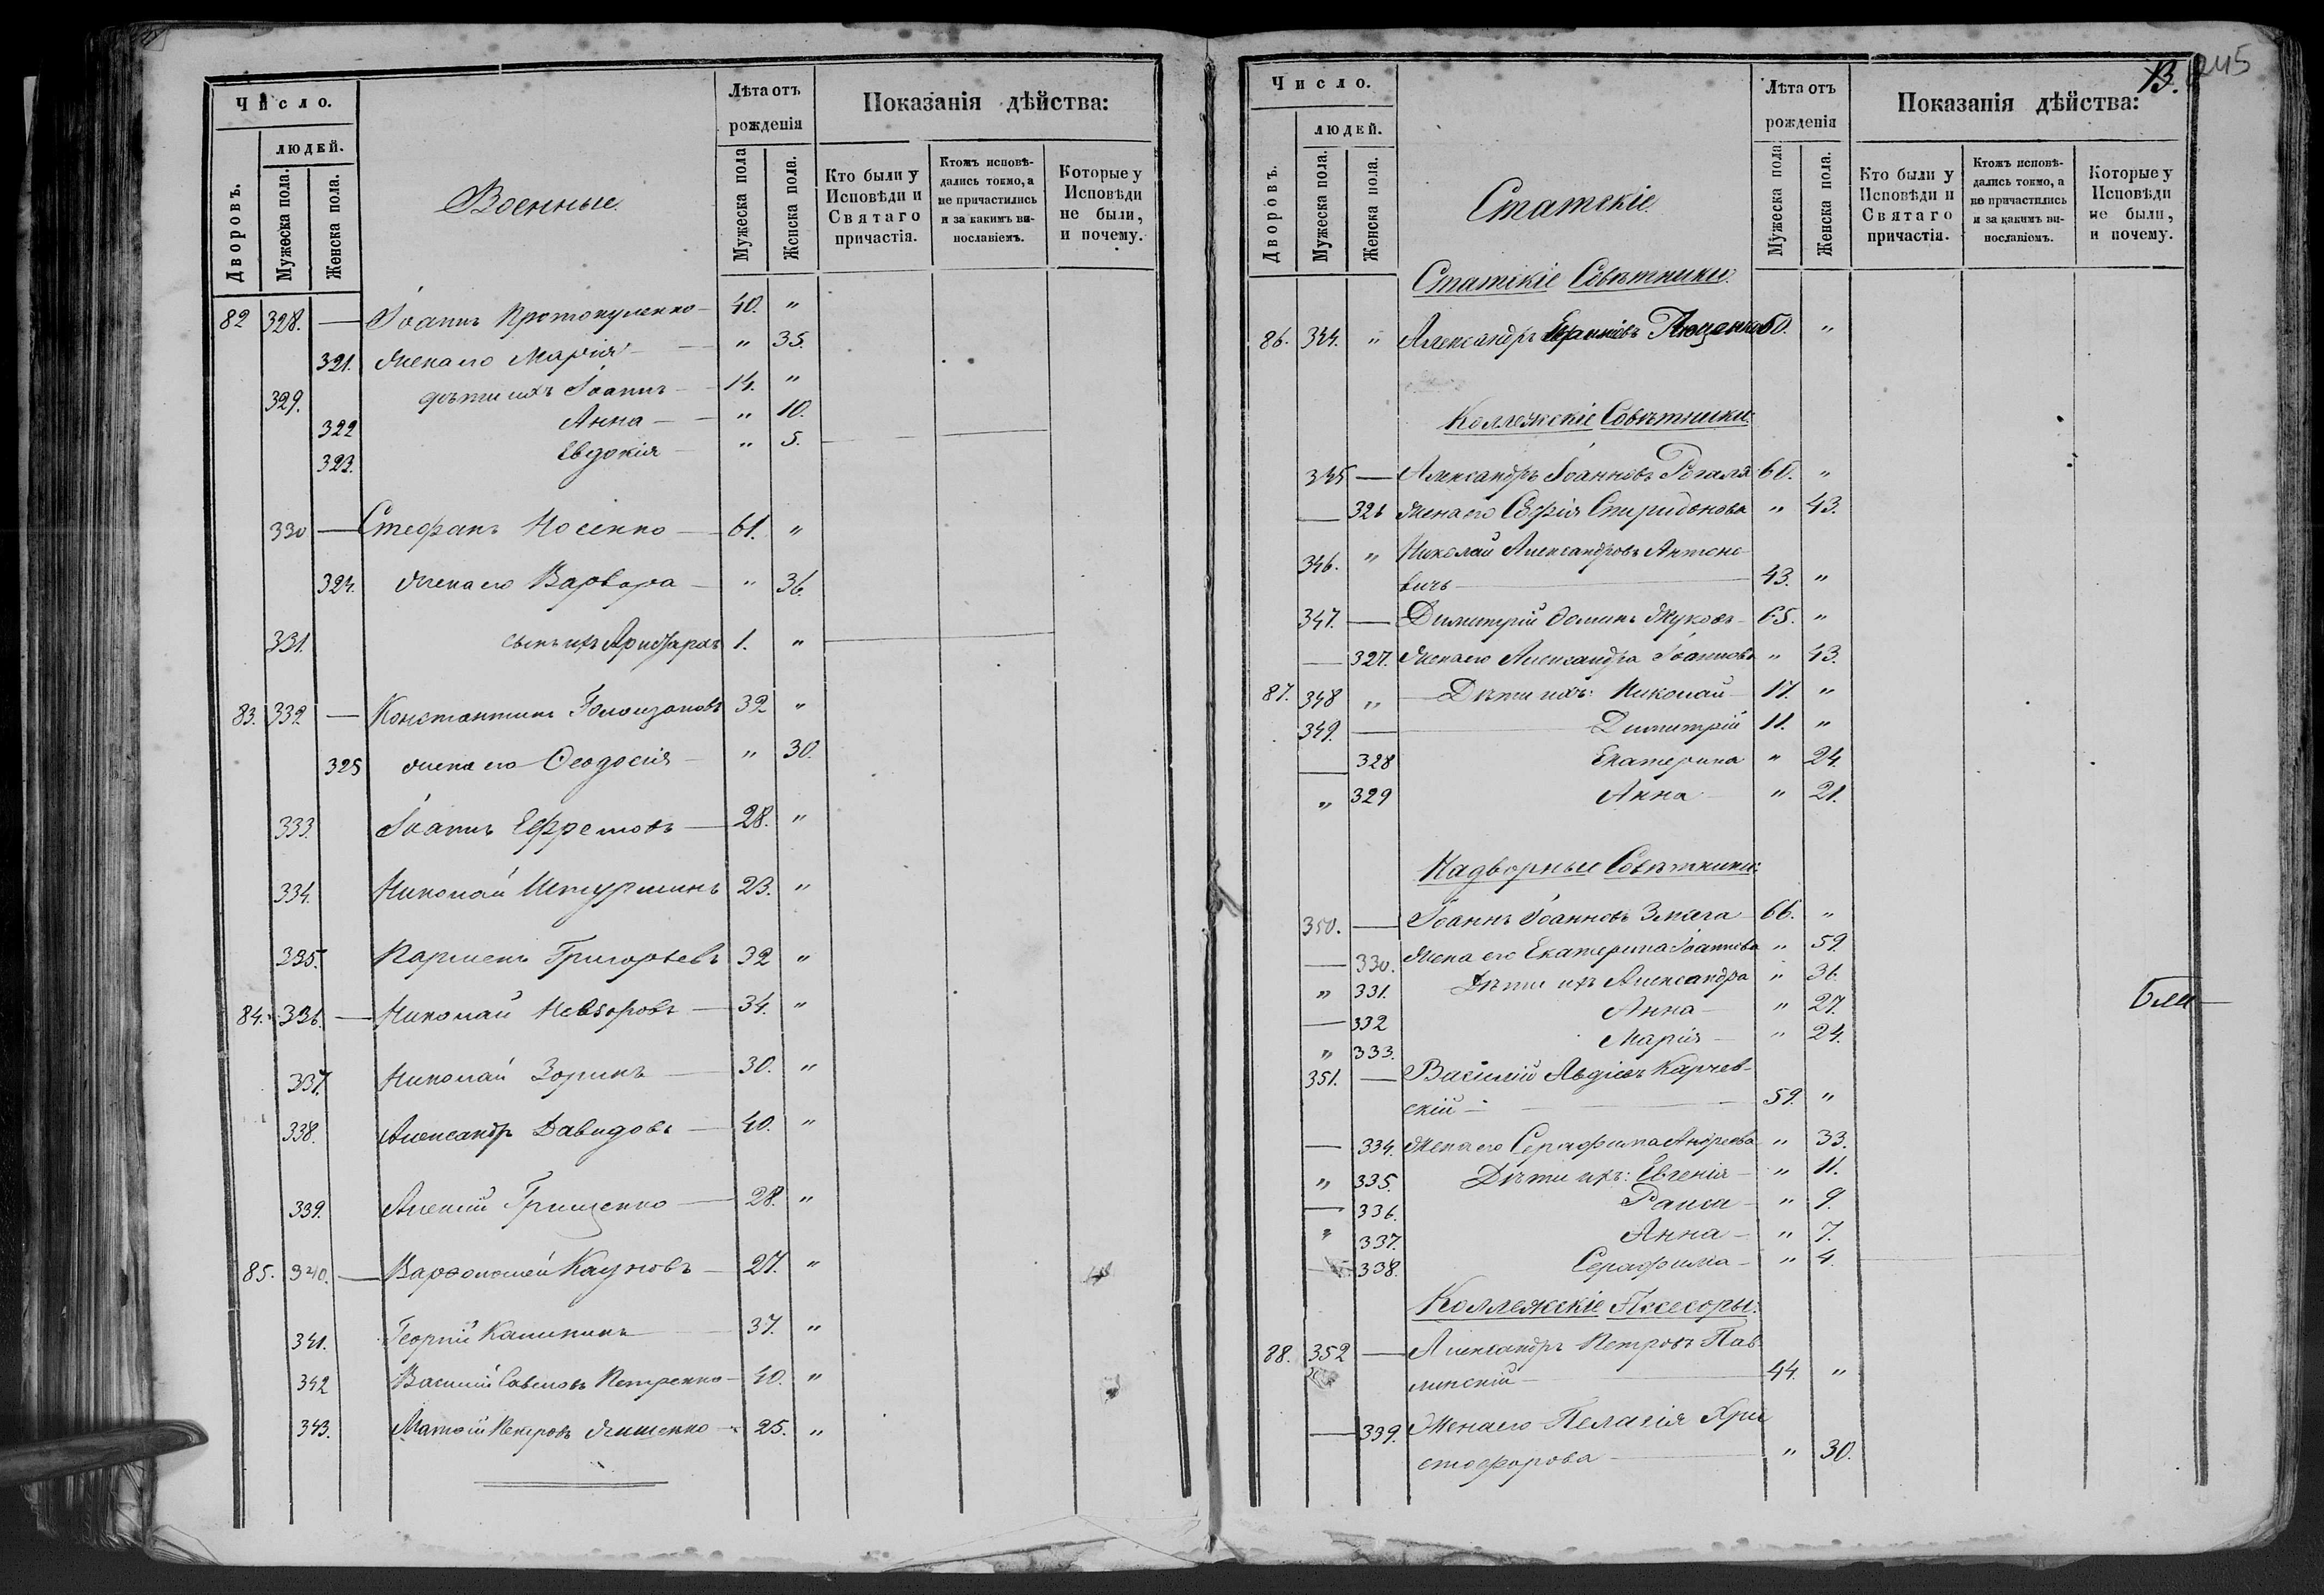 Число.
людей.
Дворовъ.
Мужеска пола.
Женска пола.
Военные
Лѣта отъ
рожденія
Мужеска пола
Женска пола.
Показанія дѣйства:
Кто были у
Исповѣди и
Святаго
причастія.
Ктожъ исповѣ-
дались токмо, а
не причастились
и за какимъ ви-
нославіемъ.
Которые у
Исповѣди
не были,
и почему.
82 328. — Іоаннъ Протопуленко — 40. "
321. Жена его Марія — " 35.
329. дѣти ихъ Іоаннъ — 14. "
322 Анна — " 10.
323. Евдокія — " 5.
330 — Стефанъ Носенко — 61. "
324. Жена его Варвара — " 36.
331. сынъ ихъ 1. "
83. 332. — Константинъ 32 "
325 жена его Ѳеодосія — " 30.
333. Іоаннъ Ефремовъ — 28. "
334. Николай Штурминъ 23. "
335. Парменъ Григорьевъ 32 "
84. 336. — Николай Невзоровъ — 34. "
337. Николай Зоринъ — 30. "
338. Александръ Давидовъ — 40. "
339. Алексій Грищенко — 28. "
85. 340. — Варѳоломей Кауновъ — 27. "
341. Георгій Калининъ — 37. "
342 Василій Савеловъ Петренко — 40. "
343. Матѳій Петровъ — 25. "
В. 245
Число.
людей.
Дворовъ.
Мужеска пола.
Женска пола.
Статскіе.
Лѣта отъ
рожденія
Мужеска пола
Женска пола.
Показанія дѣйства:
Кто были у
Исповѣди и
Святаго
причастія.
Ктожъ исповѣ-
дались токмо, а
не причастились
и за какимъ ви-
нославіемъ.
Которые у
Исповѣди
не были,
и почему.
Статскіе Совѣтники:
86. 344. " Александръ 50. "
Коллежскіе Совѣтники:
345 — Александръ Іоанновъ Рогаля 60. "
— 326 Жена его Софія Спиридонова " 43.
346. " Николай Александровъ Антоно-
вичъ — 43. "
347. — Димитрій Жуковъ — 65. "
— 327. Жена его Александра Іоаннова " 43.
87. 348 " — Дѣти ихъ: Николай — 17. "
349. — Димитрій 11. "
— 328 Екатерина " 24.
" 329 Анна — " 21.
Надворные Совѣтники:
350. — Іоаннъ Іоанновъ Змага — 66. "
— 330. Жена его Екатерина Іоаннова " 59.
" 331. Дѣти ихъ Александра " 31.
— 332 Анна — " 27.
" 333. Марія — " 24.
351. — Василій Авдіевъ Карчев-
скій — 59. "
— 334. Жена его Серафима Андреева " 33.
" 335. Дѣти ихъ: Евгенія — " 11.
— 336. Раиса — " 9.
" 337. Анна — " 7.
— 338. Серафима — " 4.
Коллежскіе Ассесоры:
88. 352 — Александръ Петровъ Пав-
линскій — 44. "
— 339. Жена его Пелагія Хри
стофорова — " 30.